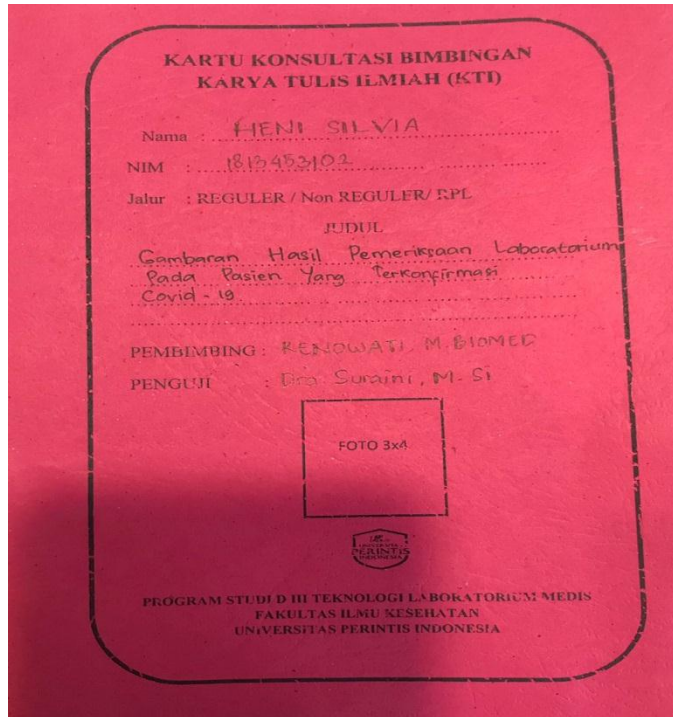 KARTU KONSULTASI BIMBINGAN
KARYA TULIS ILMIAH (KTI)
Nama : HENI SILVIA
NIM : 1813453102
Jalur : REGULER / Non REGULER/ RPL
JUDUL
Gambaran Hasil Pemeriksaan Laboratorium
Pada Pasien Yang Terkonfirmasi
Covid - 19
PEMBIMBING : RENOWATI, M.BIOMED
PENGUJI : Dra Suraini, M.Si
FOTO 3x4
UNIVERSITAS
PERINTIS
INDONESIA
PROGRAM STUDI D III TEKNOLOGI LABORATORIUM MEDIS
FAKULTAS ILMU KESEHATAN
UNIVERSITAS PERINTIS INDONESIA